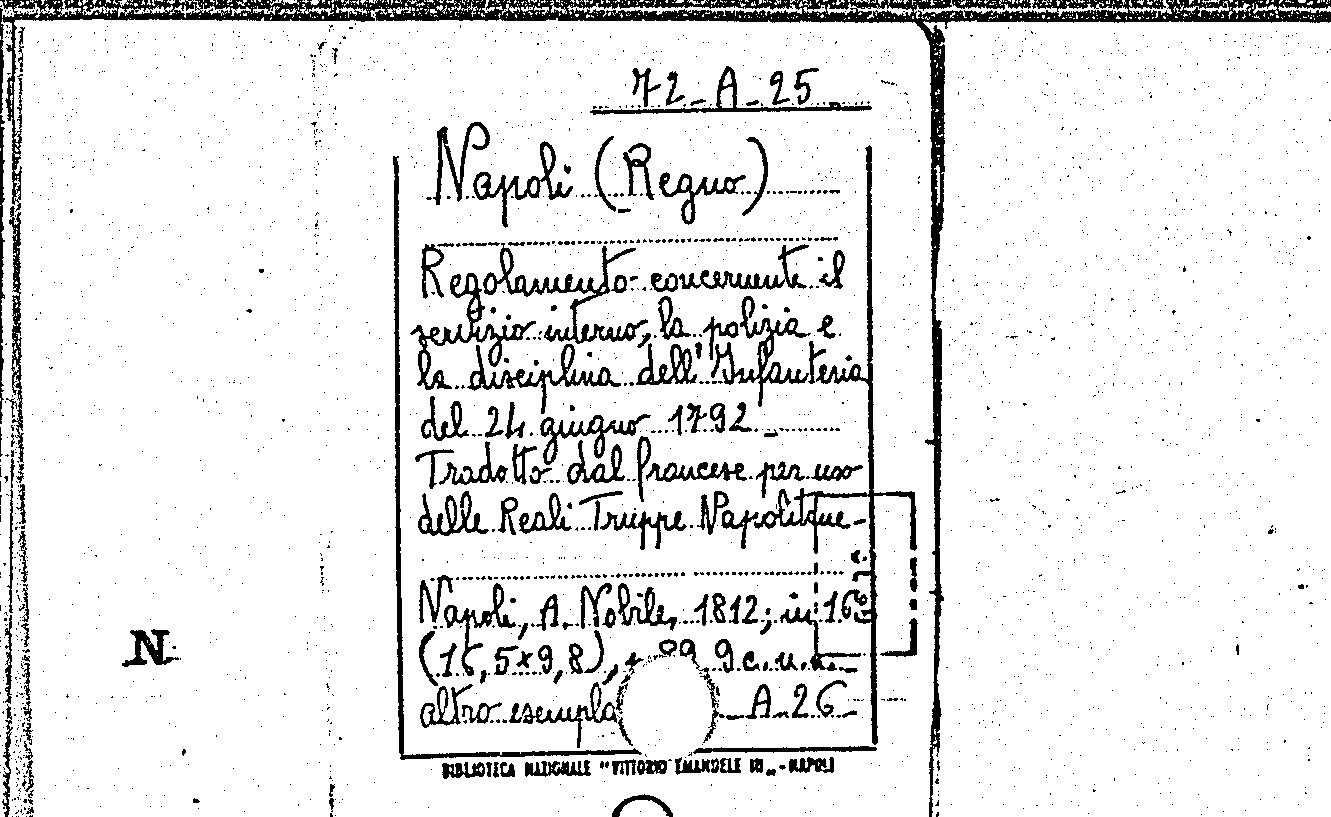 72-A-25
Napoli (Regno)
Regolamento concernente il
servizio interno, la polizia e
la disciplina dell'Infanteria
del 24 giugno 1792 -
Tradotto dal francese per uso
delle Reali Truppe Napolitane-
Napoli, A. Nobile, 1812; in 16º
(16,5×9,8), 9 c.n.n. -
altro esempla A-26
N
BIBLIOTECA NAZIONALE "VITTORIO EMANUELE III„ - NAPOLI